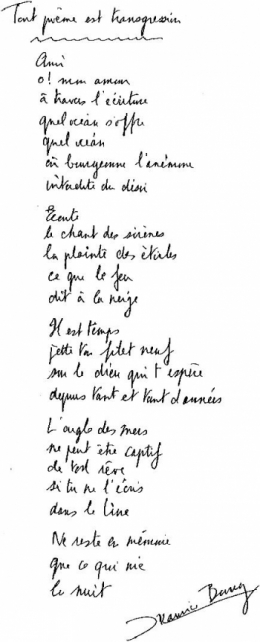 Tout poème est transgression
Ami
o! mon amour
à travers l'écriture
quel océan s'offre
quel océan
où bourgeonne l'anémone
interdite du désir
Écoute
le chant des sirènes
la plainte des étoiles
ce que le feu
dit à la neige
Il est temps
jette ton filet neuf
sur le dieu qui t'espère
depuis tant et tant d'années
L'angle des mers
ne peut être captif
de ton rêve
si tu ne l'écris
dans le Livre
Ne reste en mémoire
que ce qui nie
la nuit